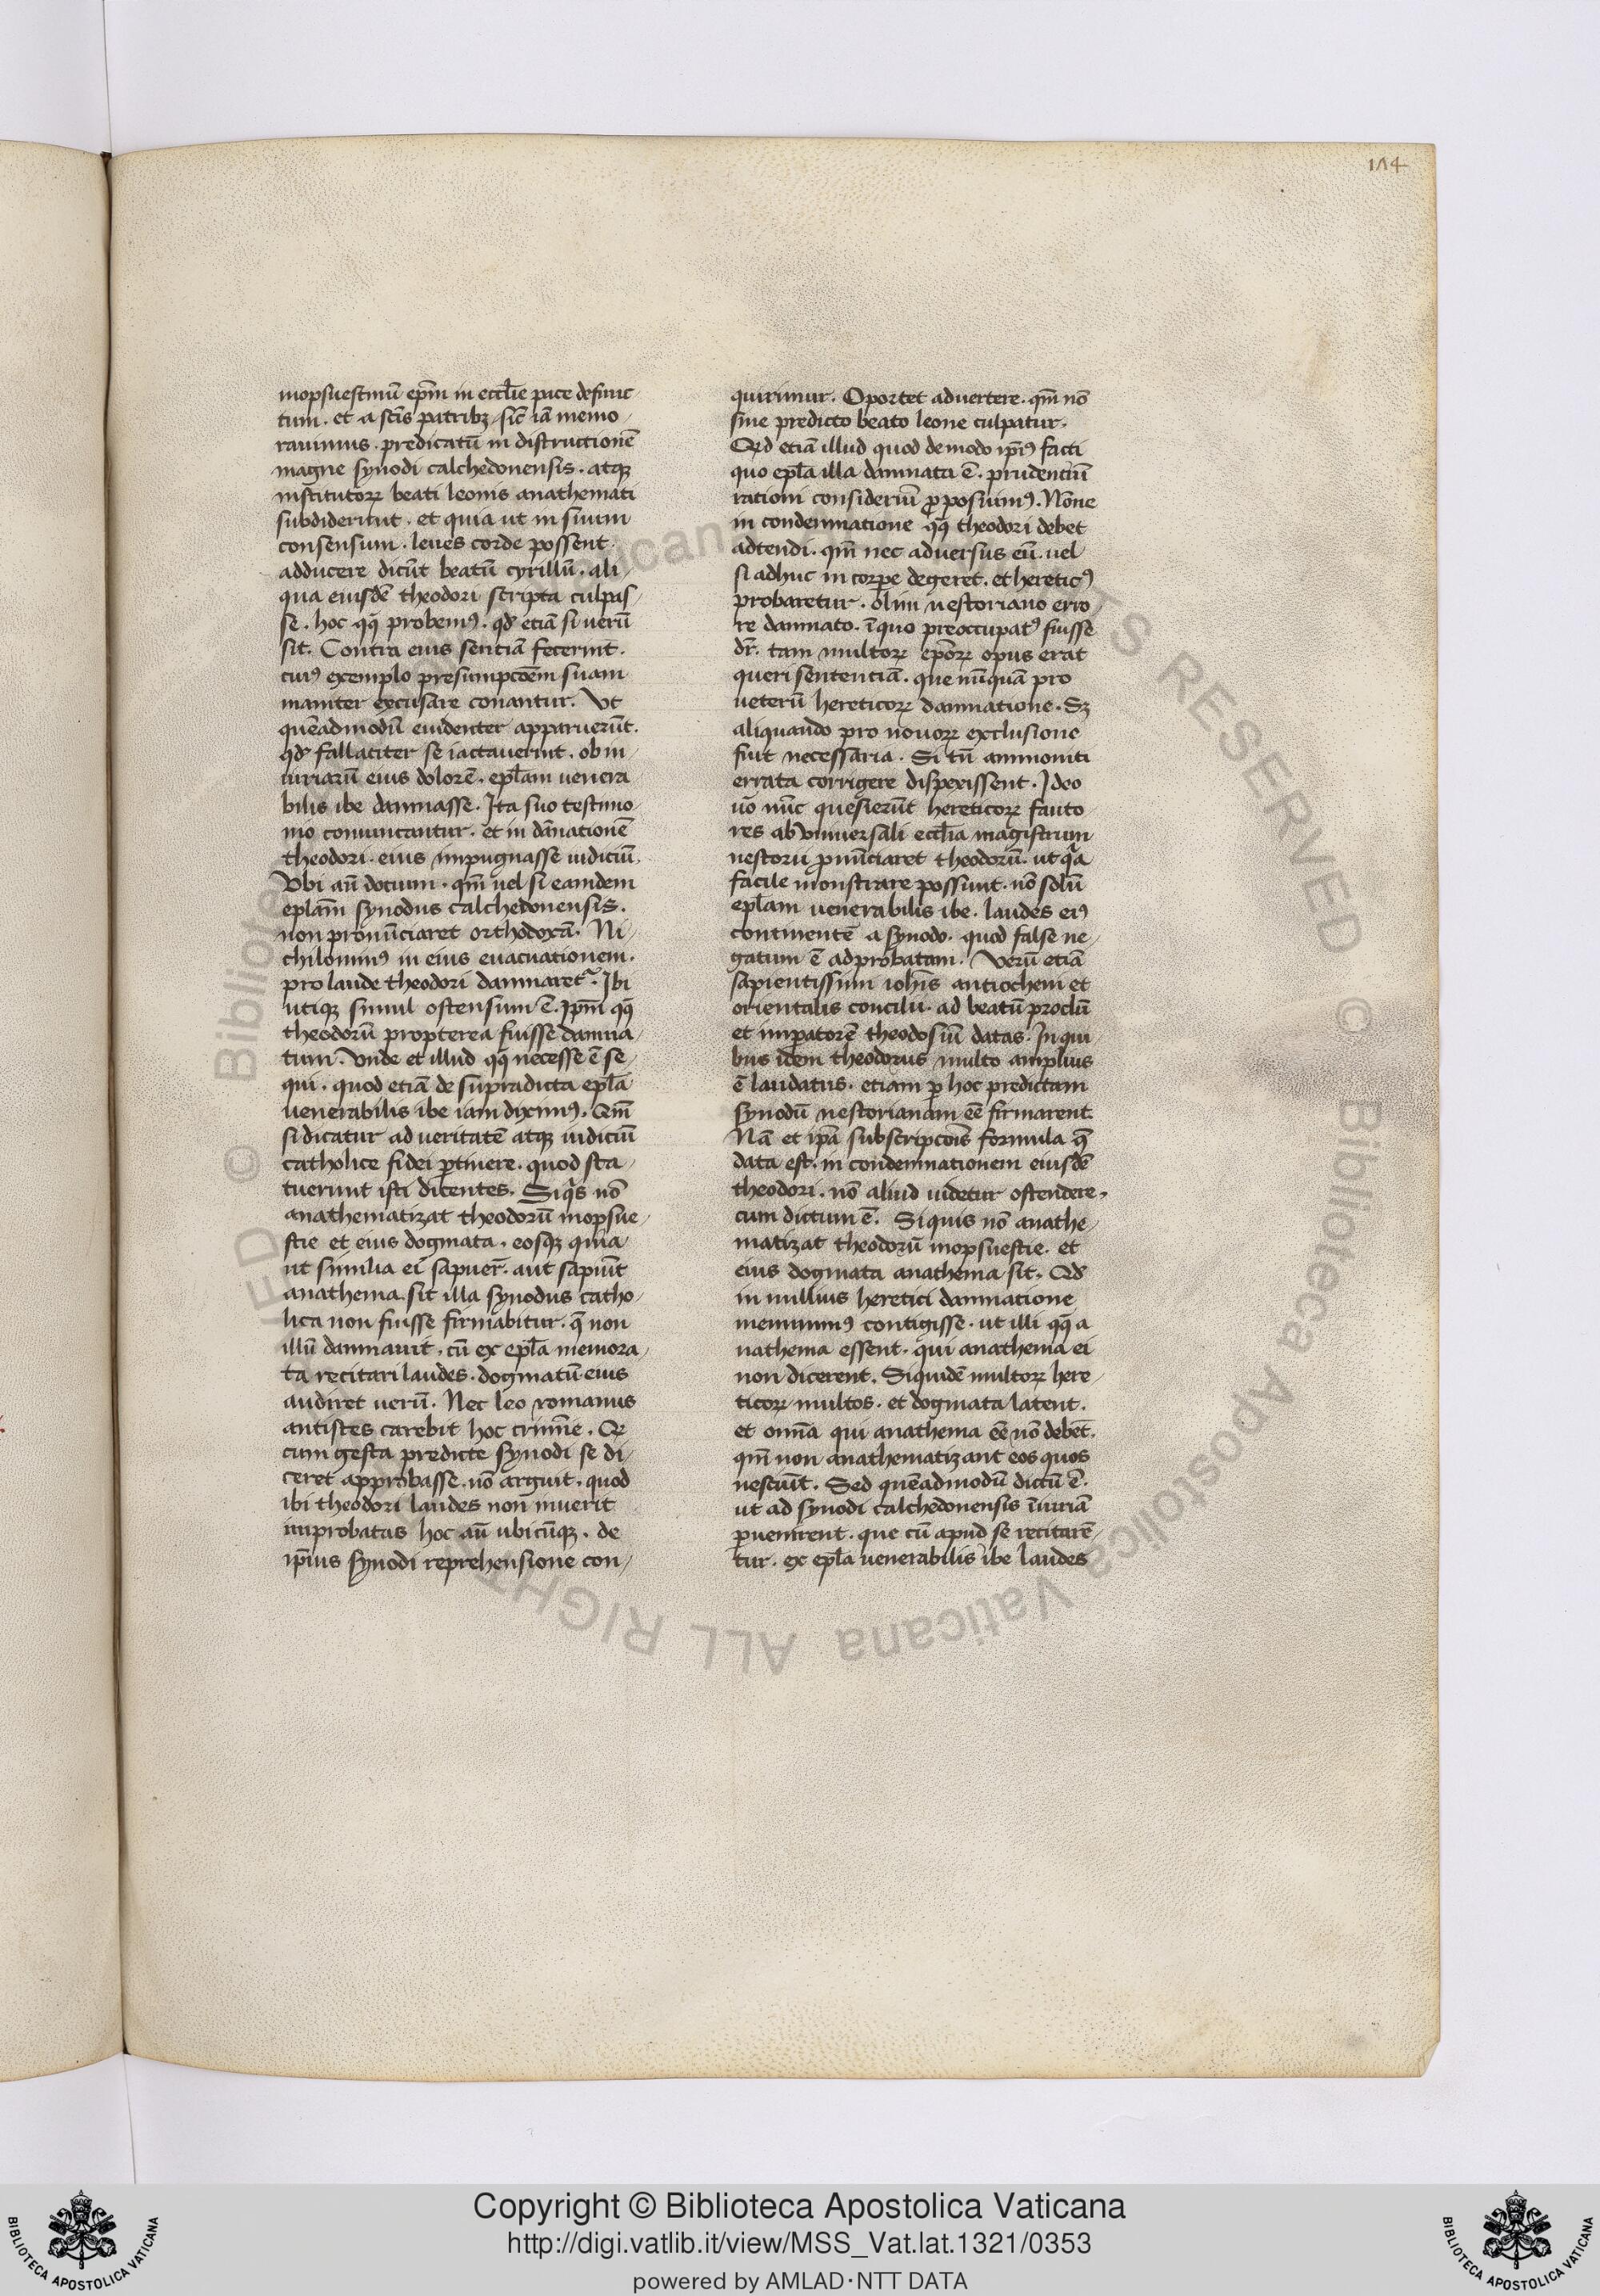 174
mopsuestenū epm̄ in eccl̄ie pace defunc
tum . et a sc̄is patribꝫ . sic̄ iā memo
rauimus . predicatū in distructionē
magne synodi calchedonensis . atqꝫ
institutoꝝ beati leonis anathemati
subdiderunt . et quia ut in suum
consensum . leues corde possent
adducere dicūt beatū cyrillū . ali
qua eiusdē theodori scripta culpas
se . hoc qꝙ probemꝰ . qd̄ etiā si uerū
sit . Contra eius sentiā fecerint .
cuiꝰ exemplo presumpcōem suam
inaniter excusare conantur . Vt
quēadmodū euidenter apparuerūt .
qd̄ fallaciter se iactauerint . ob in
iuriarū eius dolorē . epl̄am uenera
bilis ibe damnasse . Ita suo testimo
nio conuincantur . et in dānationē
theodori . eius impugnasse iudiciū .
Vbi aū docium . qm̄ uel si eamdem
eplam̄ synodus calchedonensis .
non pronūciaret orthodoxā . Ni
chilominꝰ in eius euacuationem .
pro laude theodori damnaret᷑ . Ibi
utiqꝫ simul ostensum ē . Ipm̄ qꝙ
theodorū propterea fuisse damna
tum . Vnde et illud qꝙ necesse ē se
qui . quod etiā de supradicta epl̄a
uenerabilis ibe iam diximꝰ . Qm̄
si dicatur ad ueritatē atqꝫ iudiciū
catholice fidei ꝑtinere . quod sta
tuerunt isti dicentes . Siqͥs nō
anathematizat theodorū mopsue
stie et eius dogmata . eosqꝫ quia
ut similia ei sapuer̄ . aut sapiūt
anathema sit illa synodus catho
lica non fuisse firmabitur . q̄ non
illū damnauit . cū ex epl̄a memora
ta recitari laudes . dogmatū eius
audiret uerū . Nec leo romanus
antistes carebit hoc crimīe . Qr
cum gesta predicte synodi se di
ceret approbasse . nō arguit . quod
ibi theodori laudes non inuerit
improbatas hoc aū ubicūqꝫ . de
ip̄ius synodi reprehensione con
quirimur . Oportet aduertere . qm̄ nō
sine predicto beato leone culpatur .
Qd̄ etiā illud quod de modo ip̄iꝰ facti
quo epl̄a illa damnata ē . prudenciū
rationi consideriū ꝓposuimꝰ . Nōne
in condemnatione qꝙ theodori debet
adtendi . qm̄ nec aduersus eū . uel
si adhuc in corꝑe degeret . et hereticꝰ
probaretur . olim nestoriano erro
re damnato . ī quo preoccupatꝰ fuisse
dr̄ . tam multoꝝ ep̄oꝝ opus erat
queri sententiā . que nūquā pro
ueterū hereticoꝝ damnatione . Sꝫ
aliquando pro nouoꝝ exclusione
fuit necessaria . Si tn̄ ammoniti
errata corrigere dispexissent . Ideo
uō nūc quesierūt hereticoꝝ fauto
res ab vniuersali eccl̄ia magistrum
nestorii ꝓnūciaret theodorū . ut qͣa
facile monstrare possunt . nō solū
epl̄am uenerabilis ibe . laudes eiꝰ
continentē a synodo . quod false ne
gatum ē adprobatam . Verū etiā
sapientissimi ioh̄is antiocheni et
orientalis concilii . ad beatū proclū
et imꝑatorē theodosiū datas . In qui
bus idem theodorus multo amplius
ē laudatus . etiam ꝑ hoc predictam
synodū nestorianam eē firmarent
Nā et ip̄a subscripcōis formula q̄
data est . in condemnationem eiusdē
theodori . nō aliud uidetur ostendere .
cum dictum ē . Si quis nō anathe
matizat theodorū mopsuestie . et
eius dogmata anathema sit . Qd̄
in nullius heretici damnatione
meminimꝰ contigisse . ut illi qꝙ a
nathema essent . qui anathema ei
non dicerent . Siquidē multoꝝ here
ticoꝝ multos . et dogmata latent .
et omn̄a qui anathema eē nō debēt .
qm̄ non anathematizant eos quos
nesciūt . Sed quēadmodū dictū ē .
ut ad synodi calchedonensis īiuriā
ꝑuenirent . que cū apud se recitarē
tur . ex epl̄a uenerabilis ibe laudes
Copyright © Biblioteca Apostolica Vaticana
http://digi.vatlib.it/view/MSS_Vat.lat.1321/0353
powered by AMLAD·NTT DATA
BIBLIOTECA APOSTOLICA VATICANA
BIBLIOTECA APOSTOLICA VATICANA